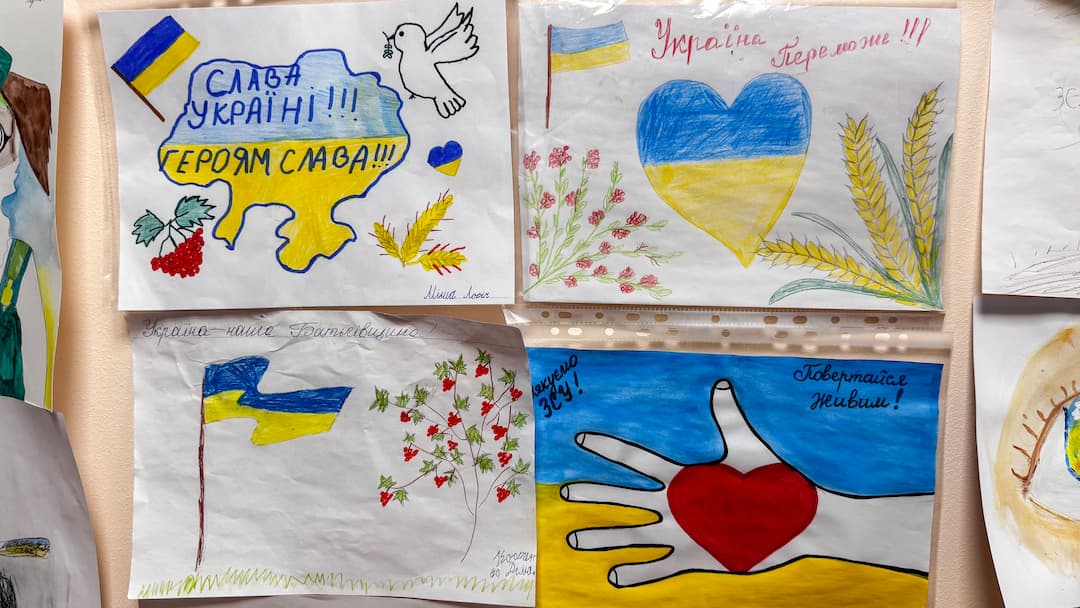 СЛАВА
УКРАЇНІ!!!
ГЕРОЯМ СЛАВА!!!
Міша
Україна
Переможе!!!
Україна-наша Батьківщина!
Діма.
ЗСУ!
Повертайся
живим!